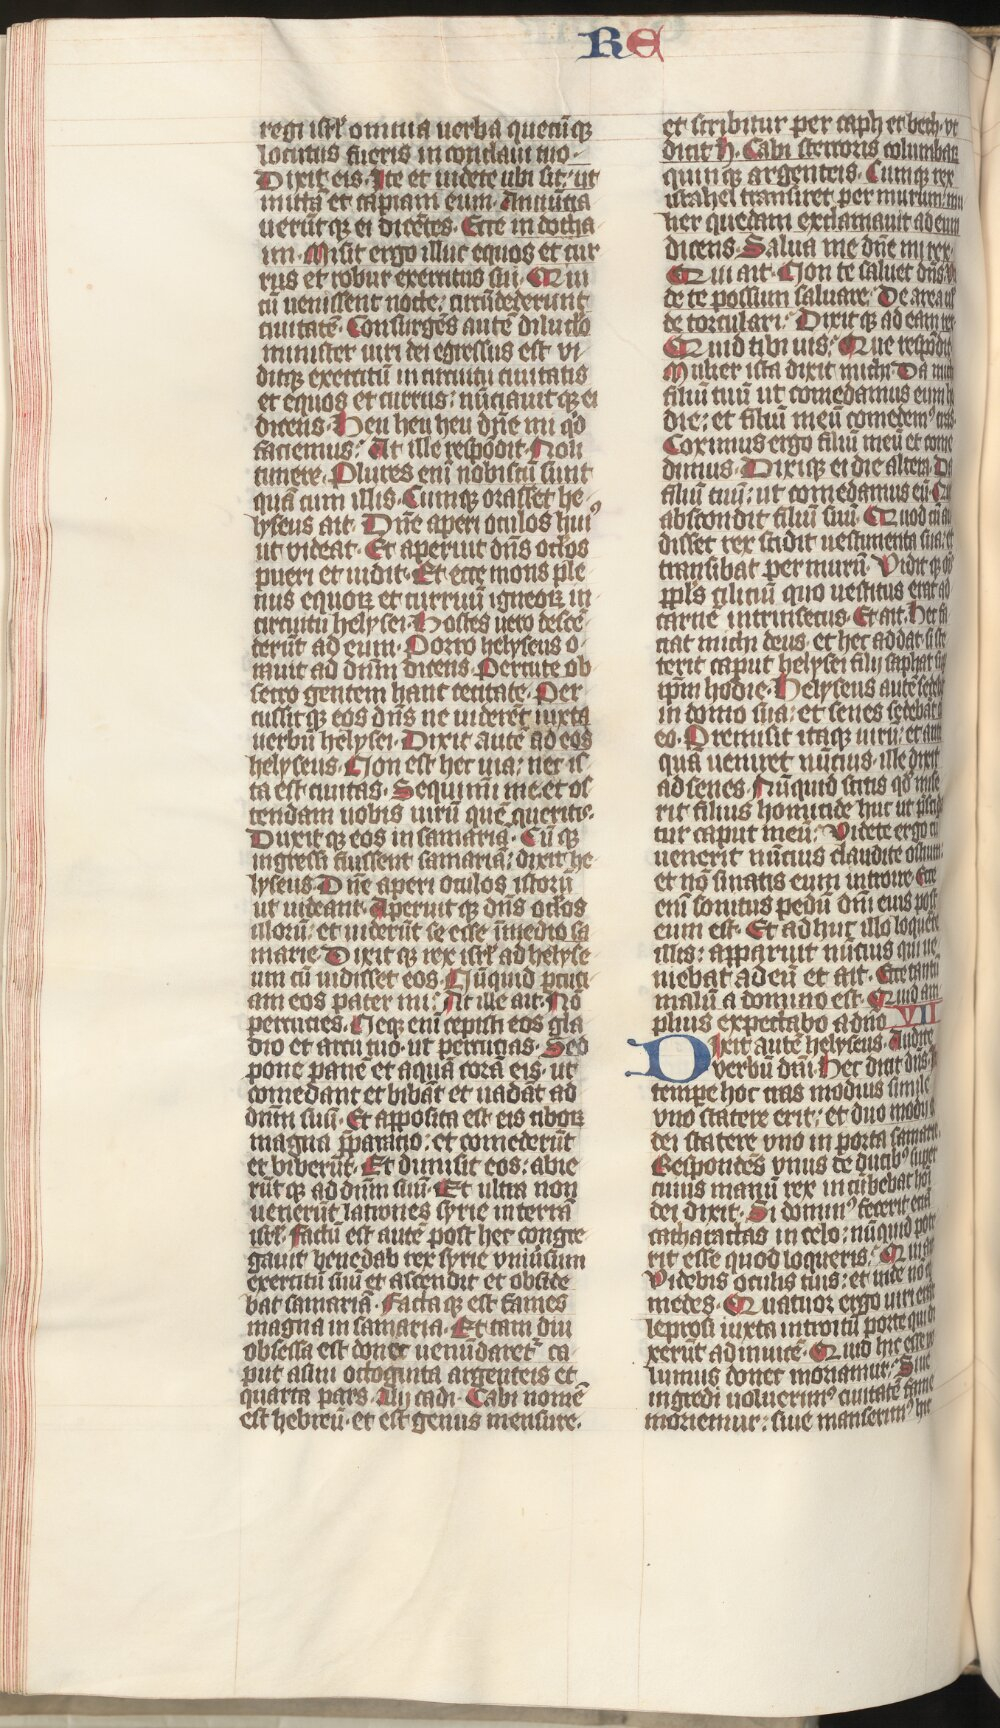 RE
regi isrł omnia uerba quecūqꝫ
locutus fueris in conclaui tuo·
Dixit eis· Ite et uidete ubi sit: ut
mittā et capiam eum· Annūcia
uerūtqꝫ ei dicētes· Ecce in dotha
im· Misit ergo illuc equos et cur
rus et robur exercitus sui· Qui
cū uenissent nocte: circūdederunt
ciuitatē· Consurgēs autē diluclo
minister uiri dei egressus est vi
ditqꝫ exercitū in circuitu ciuitatis
et equos et currus: nūciauitqꝫ ei
dicens· Heu heu heu dn̄e mi qd̄
faciemus? At ille respōdit· Noli
timere· Plures eni nobiscū sunt
quā cum illis· Cumqꝫ orasset he
lyseus ait· Dn̄e aperi oculos huiꝰ
ut videat· Et aperuit dn̄s oclos
pueri et uidit· Et ecce mons ple
nus equoꝝ et curruū igneoꝝ in
circuitu helysei· Hostes uero descē
derūt ad eum· Porro helyseus o
rauit ad dn̄m dicens· Percute ob
secro gentem hanc cecitate· Per
cussitqꝫ eos dn̄s ne uiderēt iuxta
uerbū helysei· Dixit autē ad eos
helyseus· Non est hec uia: nec is
ta est ciuitas· Sequimī me et os
tendam uobis uirū quē queritis·
Duxitqꝫ eos in samariā· Cūqꝫ
ingressi fuissent samariā: dixit he
lyseus Dn̄e aperi oculos istorū
ut uideant· Aperuitqꝫ dn̄s oclos
illorū: et uiderūt se esse ī medio sa
marie· Dixitqꝫ rex isrł ad helyse
um cū uidisset eos· Nūquid pcuci
am eos pater mi? At ille ait· Nō
percucies· Neqꝫ eni cepisti eos gla
dio et arcu tuo· ut percucias· Sed
pone panē et aquā corā eis· ut
comedant et bibāt et uadāt ad
dn̄m suū· Et apposita est eis ciboꝝ
magna p̄paracio: et comederūt
et biberūt· Et dimisit eos: abie
rūtqꝫ ad dn̄m suū· Et ultra non
uenerūt latrones syrie in terrā
isrł· Factū est autē post hec congre
gauit benedab rex syrie vniūsum
exercitū suū et ascendit et obside
bat samariā· Factaqꝫ est fames
magna in samaria· Et tam diu
obsessa est donec uenūdaretʳ ca
put asini octoginta argenteis et
quarta pars· Iłij cadi· Cabi nomē
est hebreū· et est genus mensure·
et scribitur per caph et beth· vt
dicit h̄· Cabi stercoris columbaꝝ
quinqꝫ argenteis· Cumqꝫ rex
israhel transiret per murum: mu
lier quedam exclamauit ad eum
dicens· Salua me dn̄e mi rex·
Qui ait· Non te saluet dn̄s· vn̄
de te possum saluare? De area uł
de torculari? Dixitqꝫ ad eam rex·
Quid tibi uis? Que respōdit·
Mulier ista dixit michi· Da
filiū tuū ut comedamus eum ho
die: et filiū meū comedemꝰ cras·
Coximus ergo filiū meū et come
dimus· Dixiqꝫ ei die altera· Da
filiū tuū: ut comedamus eū· Que
abscondit filiū suū· Quod cū au
disset rex scidit uestimenta sua: et
transibat per murū· Viditqꝫ oīs
ppl̄s ciliciū quo uestitus erat ad
carnē intrinsecus· Et ait· Hec fa
ciat michi deus· et hec addat· si ste
terit caput helysei filij saphat sup
ipm̄ hodie· Helyseus autē sedebat
in domo sua: et senes sedebāt cū
eo· Premisit itaqꝫ uirū: et ante
quā veniret nūcius· ille dixit
ad senes· Nūquid scitis qd̄ mise
rit filius homicide huc ut p̄scida
tur caput meū? Videte ergo cū
uenerit nūcius claudite ostium:
et nō sinatis eum introire· Ecce
eni sonitus pedū dn̄i eius post
eum est· Et ad huc illo loquēte
illis: apparuit nūcius qui ue
niebat ad eū et ait· Ecce tantū
malū a domino est· Quid am
plius expectabo a dn̄o· VII
Dixit autē helyseus· Audite
verbū dn̄i· Hec dicit dn̄s· In
tempe hoc cras modius simile
vno statere erit: et duo modij or
dei statere vno in porta samarie·
Respondēs vnus de ducibꝰ super
cuius manū rex incūbebat hoī
dei dixit· Si dominꝰ fecerit eciā
catharactas in celo: nūquid pote
rit esse quod loqueris? Qui ait·
Videbis oculis tuis: et inde nō co
medes· Quatuor ergo uiri erāt
leprosi iuxta introitū porte qui di
xerūt ad inuicē· Quid hic esse vo
lumus donec moriamur? Siue
ingredi uoluerimꝰ ciuitatē fame
moriemur: siue manserimꝰ hic